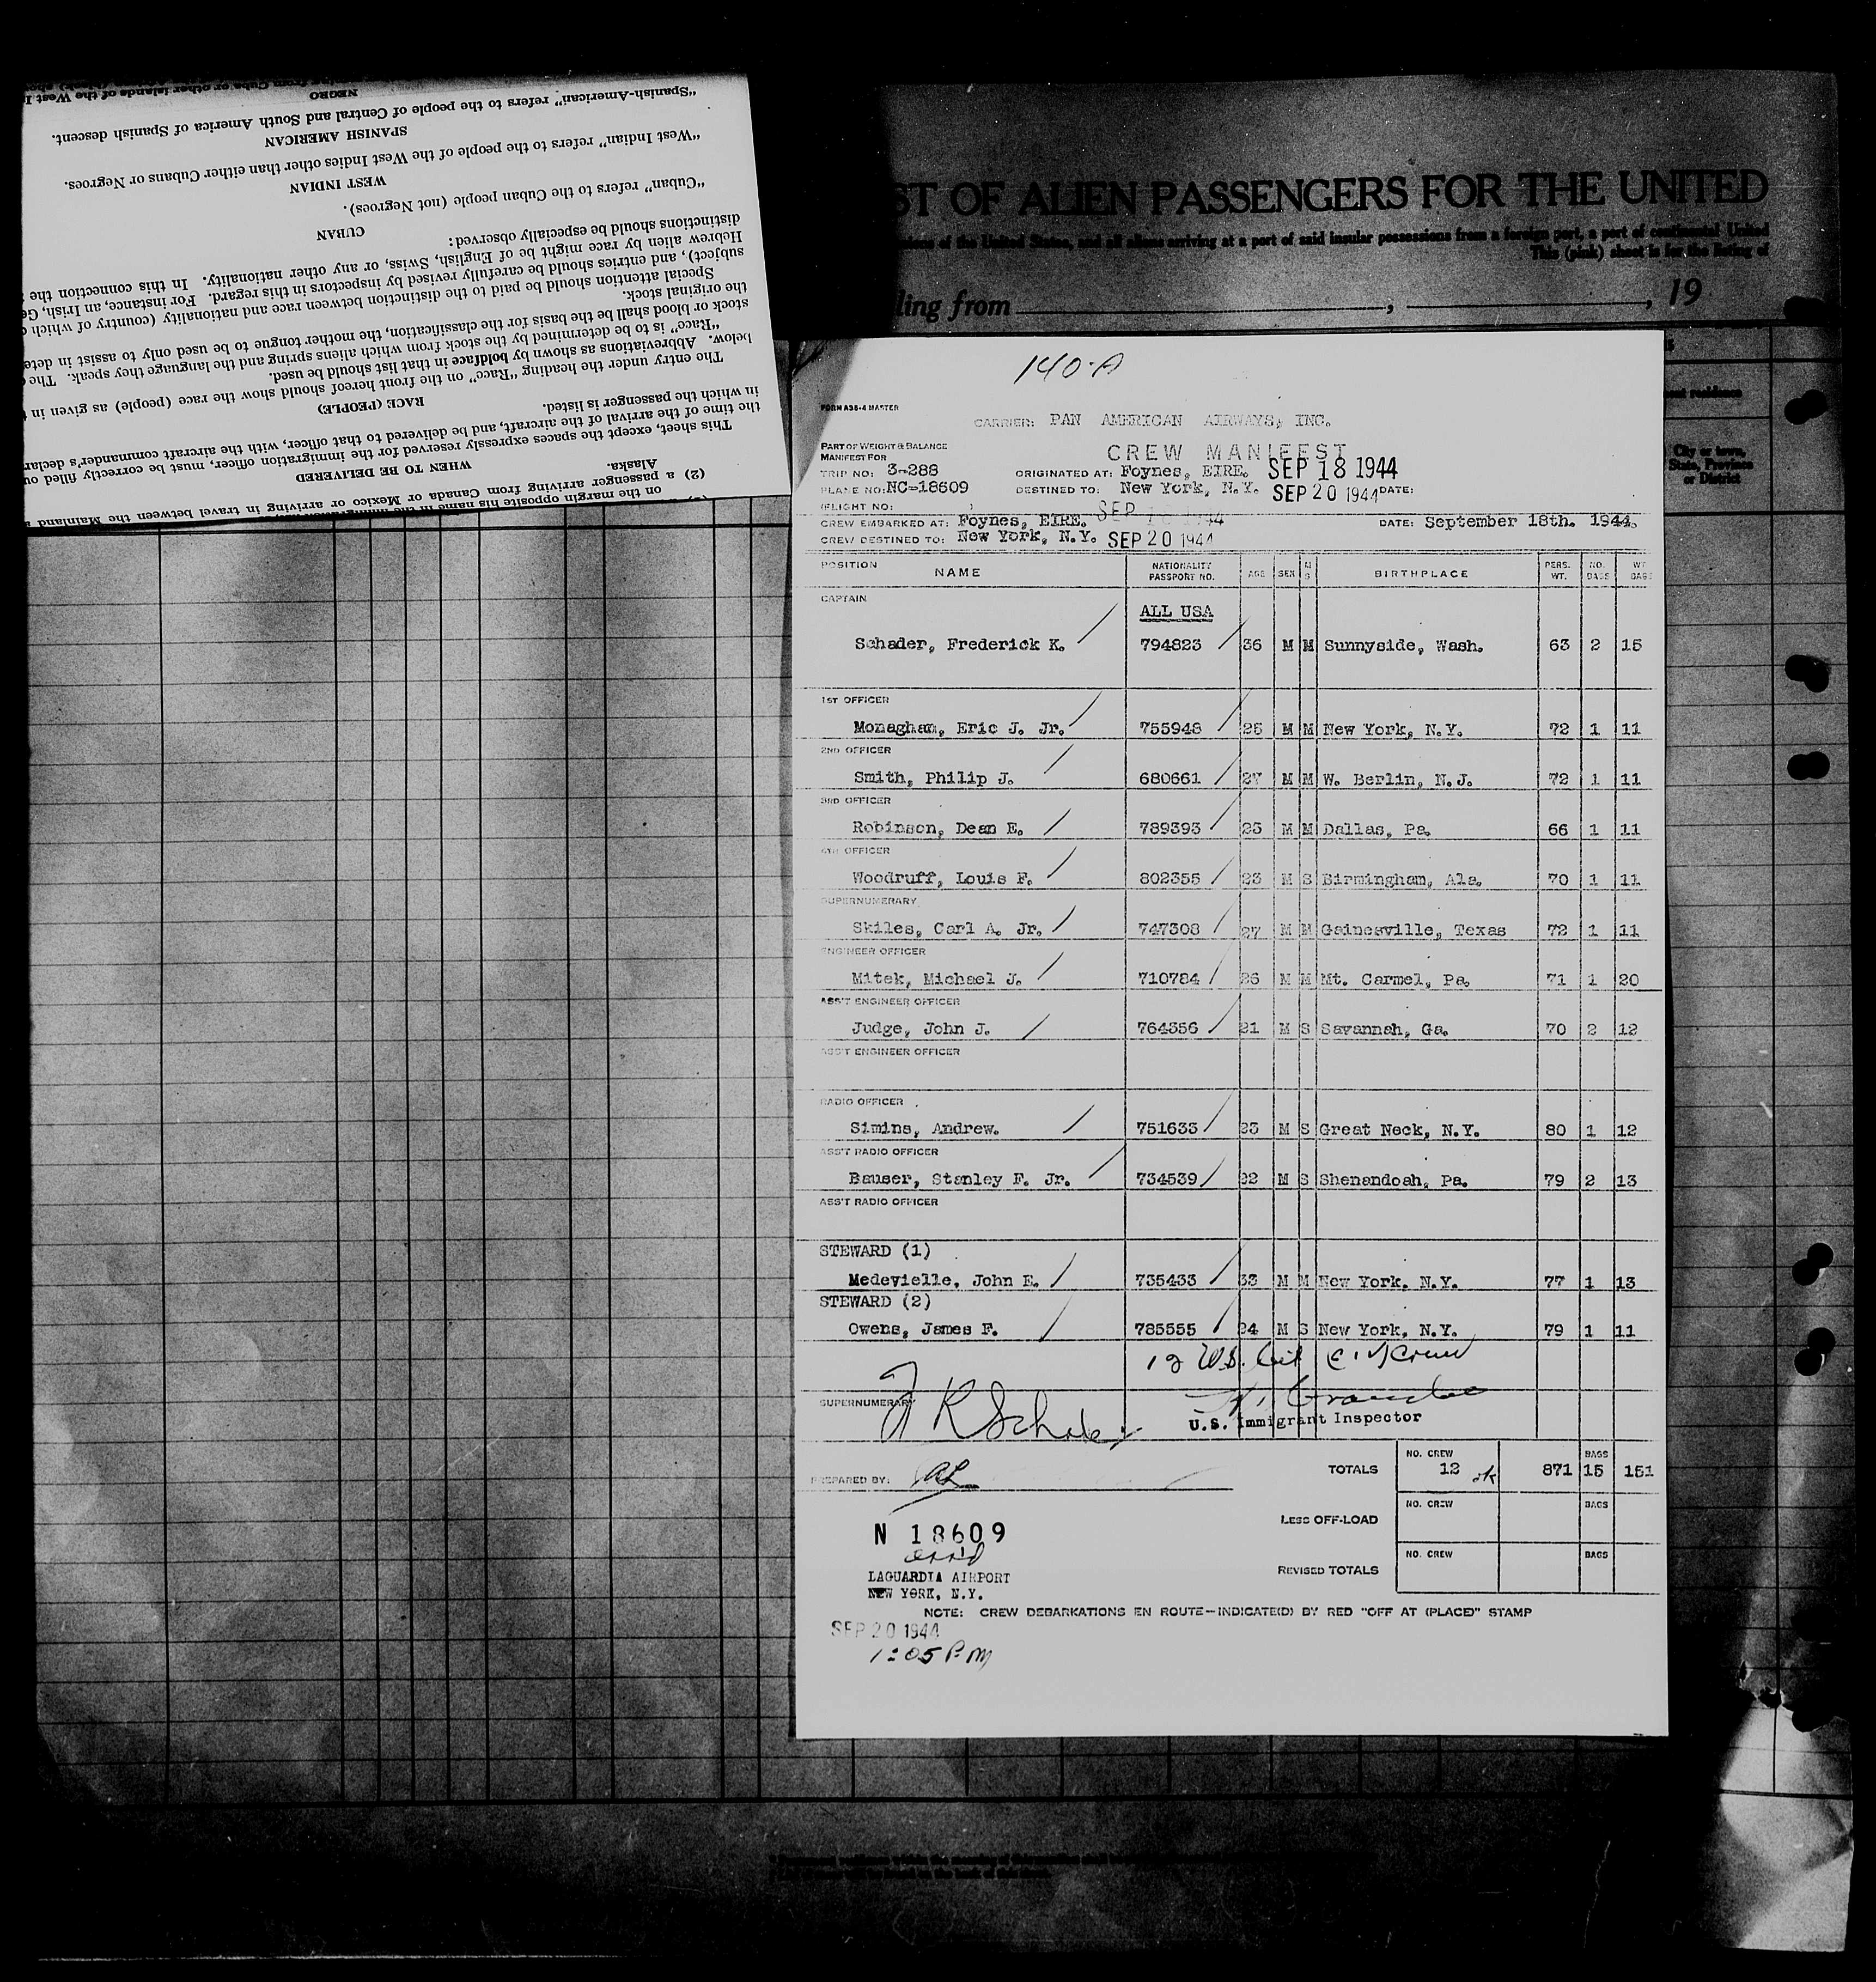 "Spanish-American" refers to the people of Central and South America of Spanish descent.
NEGRO
SPANISH AMERICAN
"West Indian" refers to the people of the West Indies other than either Cubans or Negroes.
WEST INDIAN
"Cuban" refers to the Cuban people (not Negroes).
CUBAN
distinctions should be especially observed:
Hebrew alien by race might be of English, Swiss, or any other nationality. In this connection the
subject), and entries should be carefully revised by inspectors in this regard. For instance, an Irish,
Special attention should be paid to the distinction between race and nationality (country of which
the original stock.
stock or blood shall be the basis for the classification, the mother tongue to be used only to assist in
"Race" is to be determined by the stock from which aliens spring and the language they speak. The
below. Abbreviations as shown by boldface in that list should be used.
The entry under the heading "Race" on the front hereof should show the race (people) as given in
RACE (PEOPLE)
in which the passenger is listed.
the time of the arrival of the aircraft, and be delivered to that officer, with the aircraft commander's
This sheet, except the spaces expressly reserved for the immigration officer, must be correctly filled
WHEN TO BE DELIVERED
Alaska.
(2) a passenger arriving from Canada or Mexico or arriving in travel between the Mainland
on the margin opposite his name in the
ST OF ALIEN PASSENGERS FOR THE UNITED
of the United States, and all aliens arriving at a port of said insular possessions from a foreign port, a port of continental United
This (pink) sheet is for the listing of
ling from , , 19
residence
City or town, State, Province or District
140-A
FORM A35-4 MASTER
CARRIER: PAN AMERICAN AIRWAYS, INC.
PART OF WEIGHT & BALANCE
MANIFEST FOR
CREW MANIFEST
TRIP NO: 3-288 ORIGINATED AT: Foynes, EIRE. SEP 18 1944
PLANE NO: NC-18609 DESTINED TO: New York, N.Y. SEP 20 1944 DATE:
(FLIGHT NO: )
CREW EMBARKED AT: Foynes, EIRE. SEP 18 1944 DATE: September 18th. 1944.
CREW DESTINED TO: New York, N.Y. SEP 20 1944
POSITION NAME NATIONALITY PASSPORT NO. AGE SEX M S BIRTHPLACE PERS. WT. NO. BAGS WT BAGS
CAPTAIN
ALL USA
Schader, Frederick K. 794823 36 M M Sunnyside, Wash. 63 2 15
1ST OFFICER
Monaghan, Eric J. Jr. 755948 25 M M New York, N.Y. 72 1 11
2ND OFFICER
Smith, Philip J. 680661 27 M M W. Berlin, N.J. 72 1 11
3RD OFFICER
Robinson, Dean E. 789393 25 M M Dallas, Pa. 66 1 11
4TH OFFICER
Woodruff, Louis F. 802355 23 M S Birmingham, Ala. 70 1 11
SUPERNUMERARY
Skiles, Carl A. Jr. 747308 27 M M Gainesville, Texas 72 1 11
ENGINEER OFFICER
Mitek, Michael J. 710784 26 M M Mt. Carmel, Pa. 71 1 20
ASS'T ENGINEER OFFICER
Judge, John J. 764356 21 M S Savannah, Ga. 70 2 12
ASS'T ENGINEER OFFICER
RADIO OFFICER
Simins, Andrew. 751633 23 M S Great Neck, N.Y. 80 1 12
ASS'T RADIO OFFICER
Bauser, Stanley F. Jr. 734539 22 M S Shenandoah, Pa. 79 2 13
ASS'T RADIO OFFICER
STEWARD (1)
Medevielle, John E. 735433 33 M M New York, N.Y. 77 1 13
STEWARD (2)
Owens, James F. 785555 24 M S New York, N.Y. 79 1 11
12 U.S. Cit Crew
SUPERNUMERARY
F K Schader
U.S. Immigrant Inspector
NO. CREW BAGS
PREPARED BY: TOTALS 12 ok 871 15 151
NO. CREW BAGS
LESS OFF-LOAD
N 18609
NO. CREW BAGS
REVISED TOTALS
LAGUARDIA AIRPORT
NEW YORK, N.Y.
NOTE: CREW DEBARKATIONS EN ROUTE—INDICATE(D) BY RED "OFF AT (PLACE)" STAMP
SEP 20 1944
1:05 PM